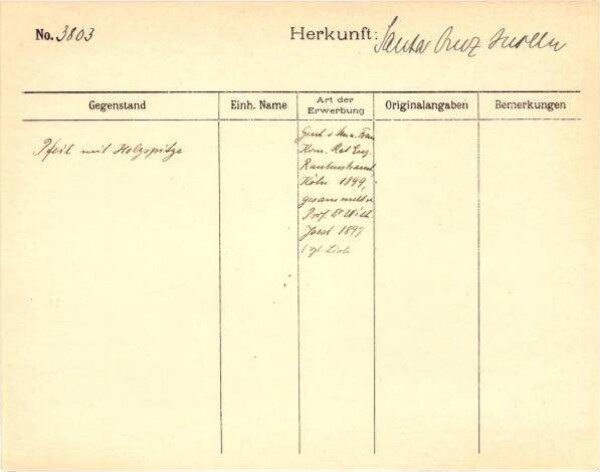 No. 3803
Herkunft: Santa Cruz Inseln
Gegenstand
Einh. Name
Art der Erwerbung
Originalangaben
Bemerkungen
Pfeil mit Holzspitze
Gesch. v. Frau
Kom. Rat Eug.
Rautenstrauch
Köln 1899,
gesammelt v.
Prof. Dr Wilh.
Joest 1897